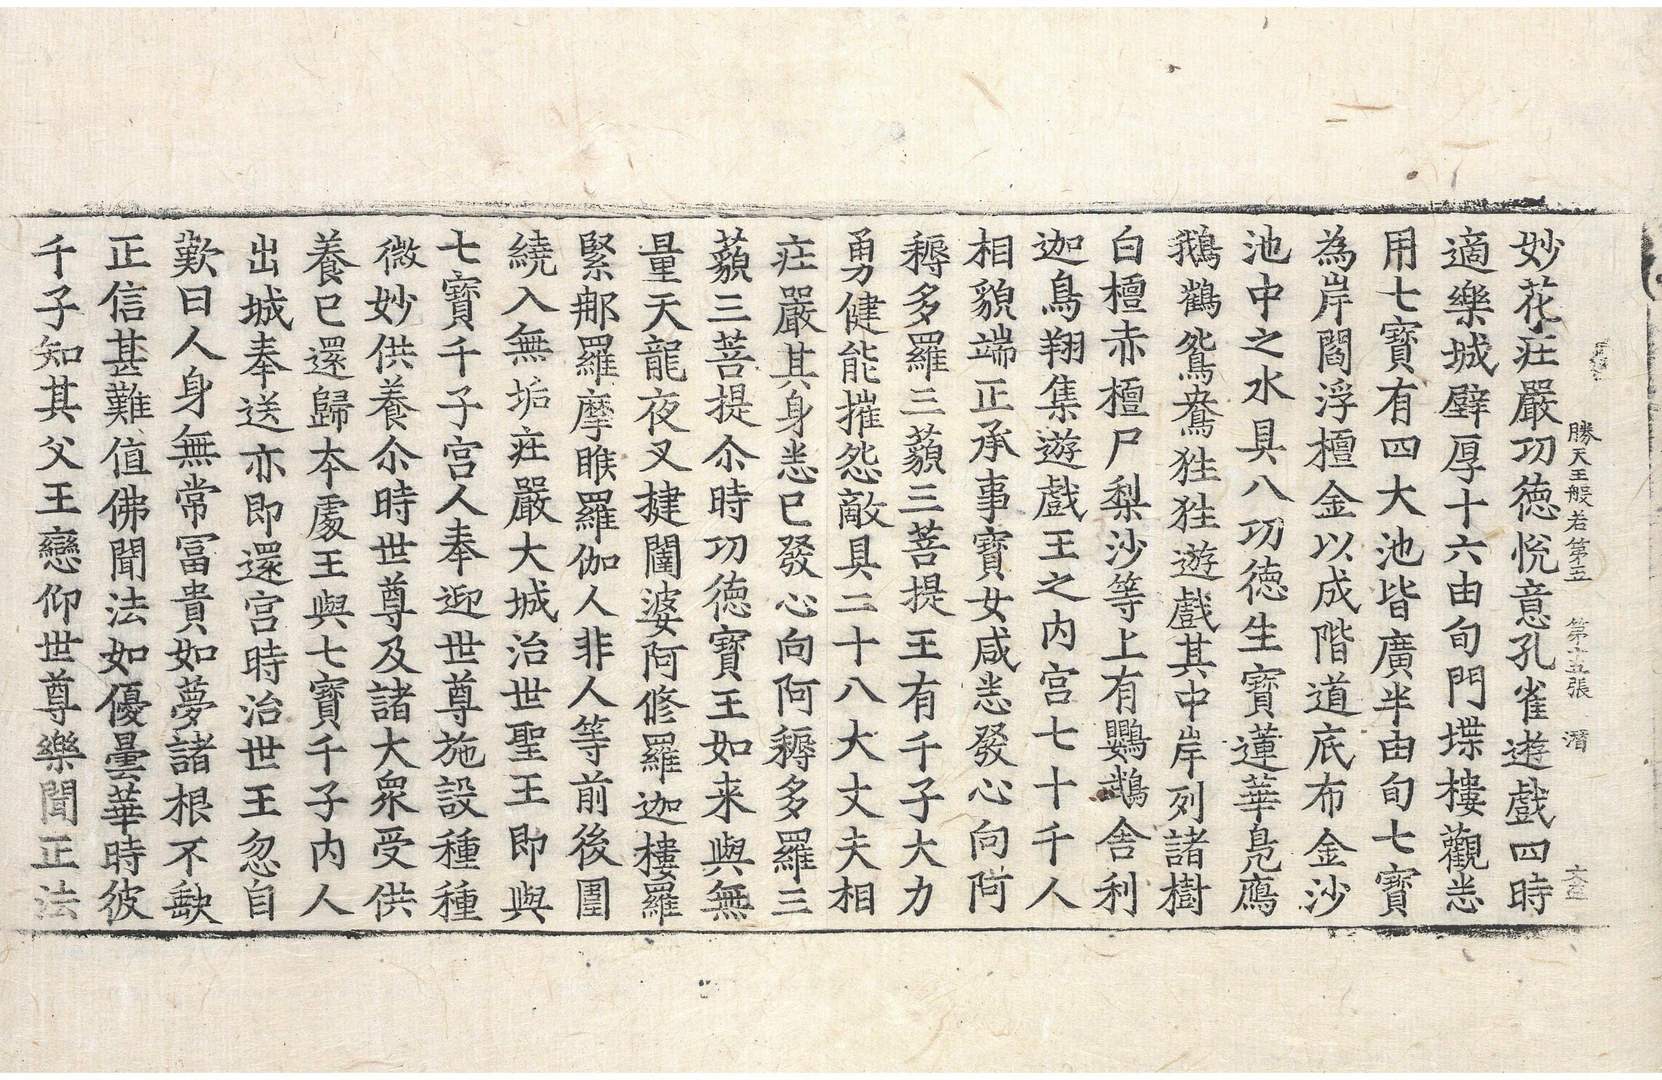 勝天王般若第五　第十五張　潛
妙花莊嚴功德悅意孔雀遊戲四時
適樂城壁厚十六由旬門堞樓觀悉
用七寶有四大池皆廣半由旬七寶
為岸閻浮檀金以成階道底布金沙
池中之水具八功德生寶蓮華鳧鴈
鵝鶴鴛鴦狌狌遊戲其中岸列諸樹
白檀赤檀尸梨沙等上有鸚鵡舍利
迦鳥翔集遊戲王之內宮七十千人
相貌端正承事寶女咸悉發心向阿
耨多羅三藐三菩提王有千子大力
勇健能摧怨敵具二十八大丈夫相
莊嚴其身悉已發心向阿耨多羅三
藐三菩提尒時功德寶王如来與無
量天龍夜叉揵闥婆阿修羅迦樓羅
緊那羅摩睺羅伽人非人等前後圍
繞入無垢莊嚴大城治世聖王即與
七寶千子宮人奉迎世尊施設種種
微妙供養尒時世尊及諸大眾受供
養已還歸本處王與七寶千子內人
出城奉送亦即還宮時治世王忽自
歎曰人身無常冨貴如夢諸根不缺
正信甚難值佛聞法如優曇華時彼
千子知其父王戀仰世尊樂聞正法